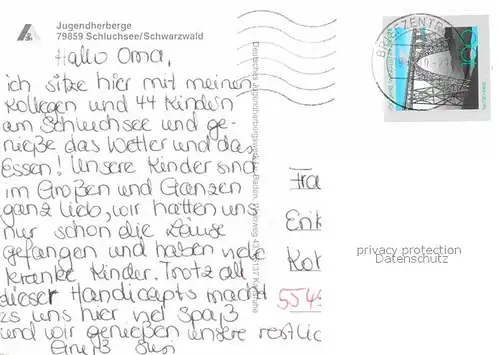 Jugendherberge
79859 Schluchsee/Schwarzwald
Hallo Oma,
ich sitze hier mit meinen
Kollegen und 44 Kindern
am Schluchsee und ge-
nieße das Wetter und das
Essen! Unsere Kinder sind
im Großen und Ganzen
ganz lieb, wir hatten uns
nur schon die Läuse
gefangen und haben viele
kranke Kinder. Trotz all
dieser Handicapts macht
es uns hier viel Spaß
und wir genießen unsere restlic
Gruß Susi
Deutsches Jugendherbergswerk
Karlsruhe
BRIEFZENTRU
Fra
Erik
Kor
554
privacy protection
Datenschutz